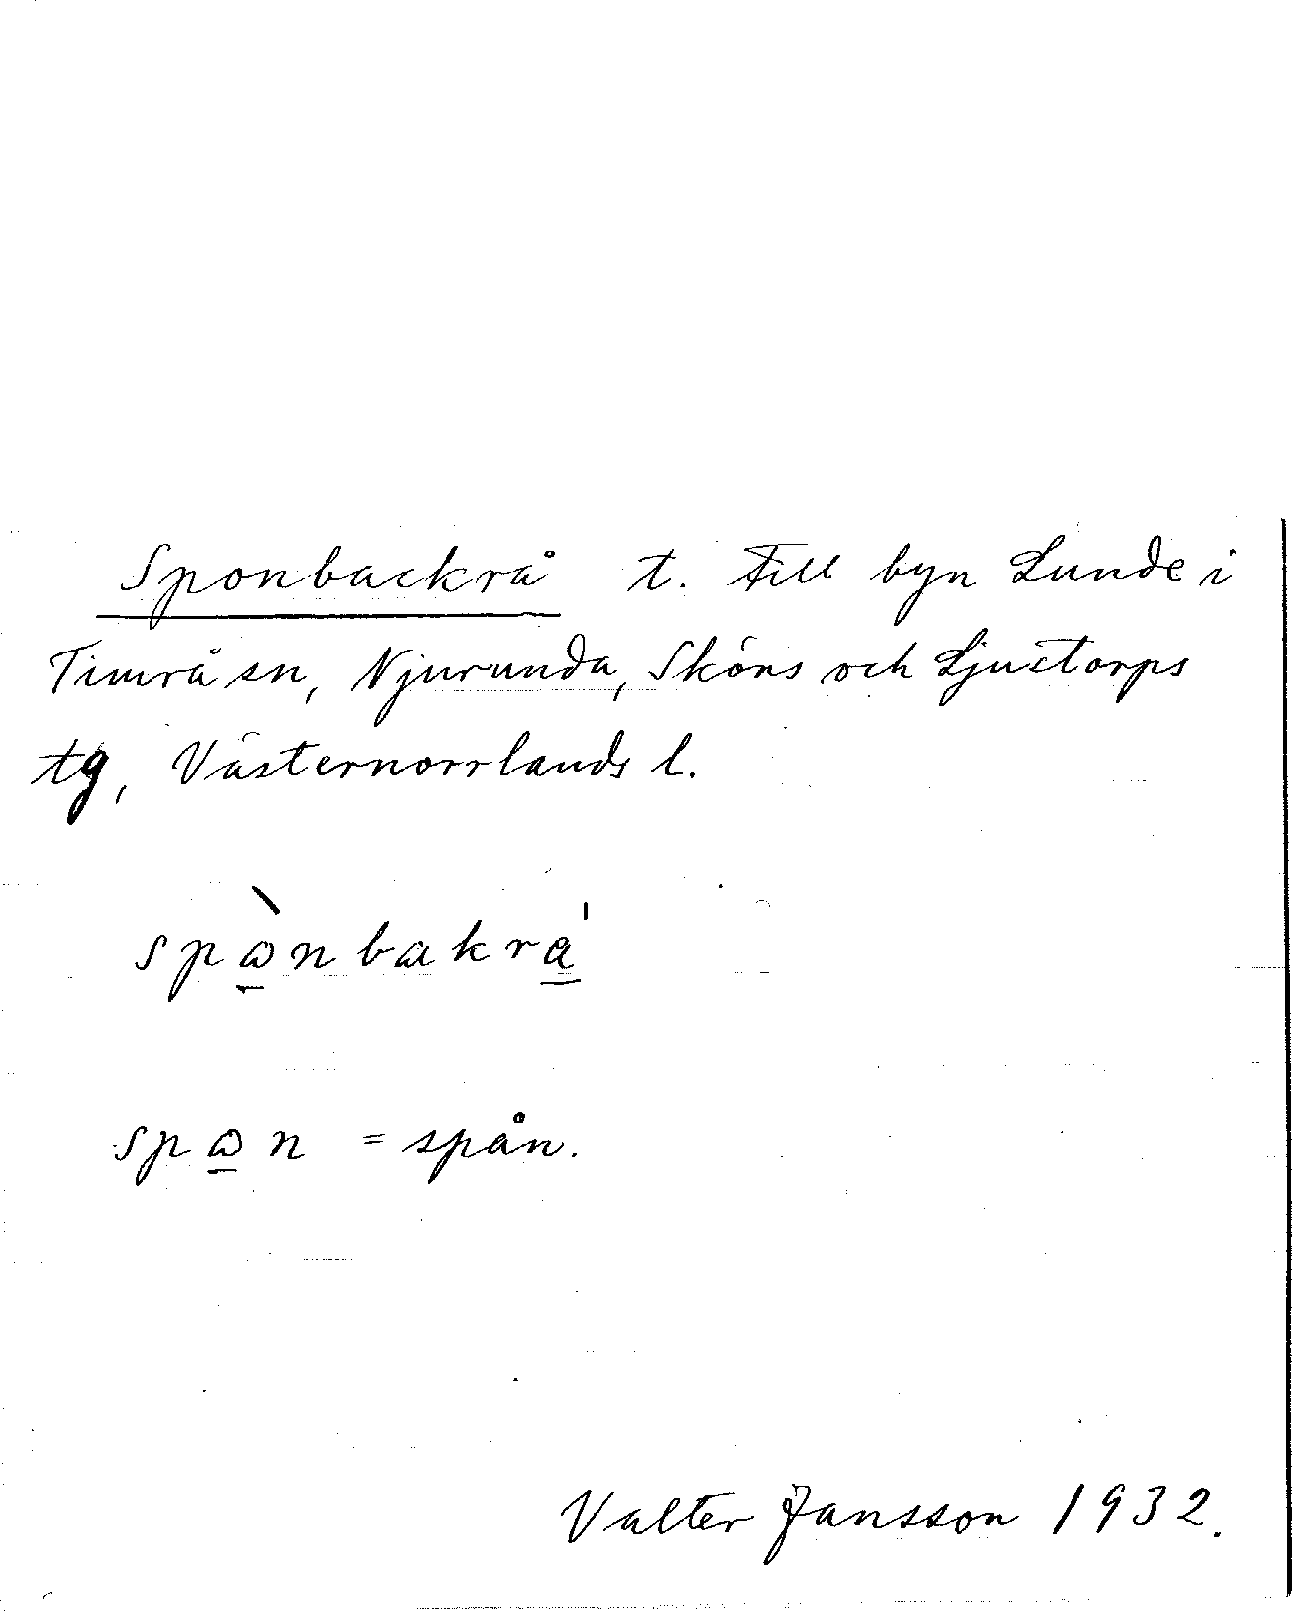 Sponbackrå t. till byn Lunde i
Timrå sn, Njurunda, Sköns och Ljustorps
tg, Västernorrlands l.
spὼ̲nbakra̲̍
spω̲n = spån.
Valter Jansson 1932.